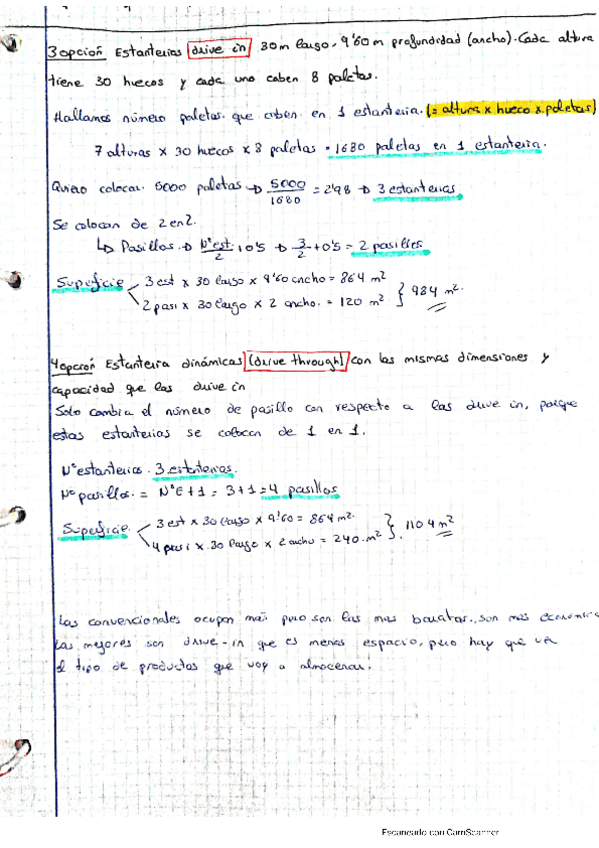 3 opción Estanterias drive in 30 m largo - 9'60 m profundidad (ancho). Cada altura
tiene 30 huecos y cada uno caben 8 paletas.
Hallamos número paletas que caben en 1 estanteria. (= altura x hueco x paletas)
7 alturas x 30 huecos x 8 paletas = 1680 paletas en 1 estanteria.
Quiero colocar 5000 paletas → 5000/1680 = 2'98 → 3 estanterias
Se colocan de 2 en 2.
↳ Pasillos → Nº est/2 + 0'5 → 3/2 + 0'5 = 2 pasillos
Superficie
3 est x 30 largo x 9'60 ancho = 864 m²
2 pasi x 30 largo x 2 ancho. = 120 m²
} 984 m².
4 opción Estanteira dinámicas (drive through) con las mismas dimensiones y
capacidad que las drive in
Solo cambia el número de pasillo con respecto a las drive in, porque
estas estanterias se colocan de 1 en 1.
Nº estanterias. 3 estanterias.
Nº pasillos. = Nº E + 1 = 3 + 1 = 4 pasillos
Superficie
3 est x 30 largo x 9'60 = 864 m².
4 pasi x 30 largo x 2 ancho = 240 m²
}. 1104 m²
Las convencionales ocupan mas pero son las mas baratas, son mas
Las mejores son drive-in que es menos espacio, pero hay que ver
el tipo de productos que voy a almacenar.
Escaneado con CamScanner